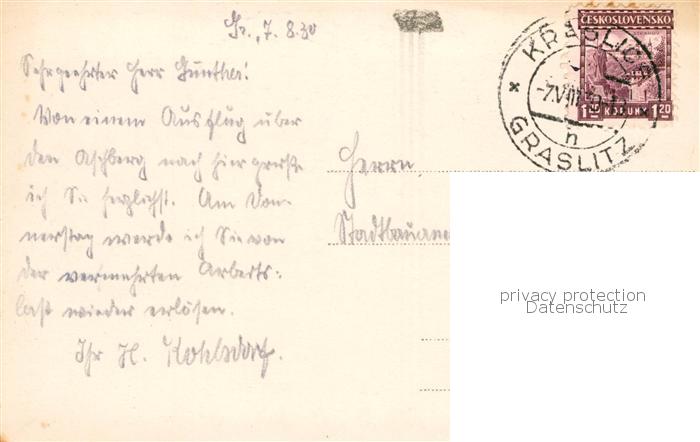 Gr., 7. 8. 30
Sehr geehrter Herr Günther!
Von einem Ausflug über
den Aschberg nach hier grüßt
ich Sie herzlichst. Am Don-
nerstag werde ich Sie von
der vermehrten Arbeits-
last wieder erlösen.
Ihr H. Kohlsdorf.
Herrn
Stadtbauam
ČESKOSLOVENSKO
1.20 KORUNA 1.20
KRASLICE
-7.VIII.30
h
GRASLITZ
privacy protection
Datenschutz